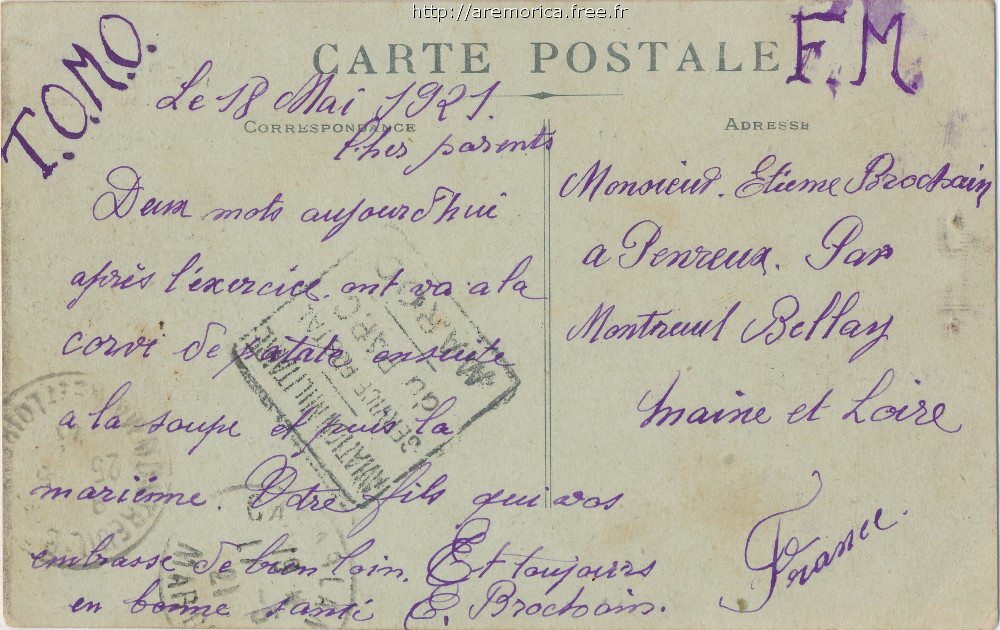 http://aremorica.free.fr
T.O.M.O.
F.M
CARTE POSTALE
Le 18 Mai 1921.
CORRESPONDANCE
ADRESSE
Cher parents
Deux mots aujourd'hui
après l'exercice. ont va a la
corvé de patate ensuite
a la soupe et puis la
mariénne. Votre fils qui vos
embrasse de bien loin. Et toujours
en bonne santé E. Brochain.
Monsieur. Etieme Brochain
a Penreux. Par
Montreuil Bellay
Maine et Loire
France.
AVIATION MILITAIRE
SERVICE POSTAL
du PARC
MAROC